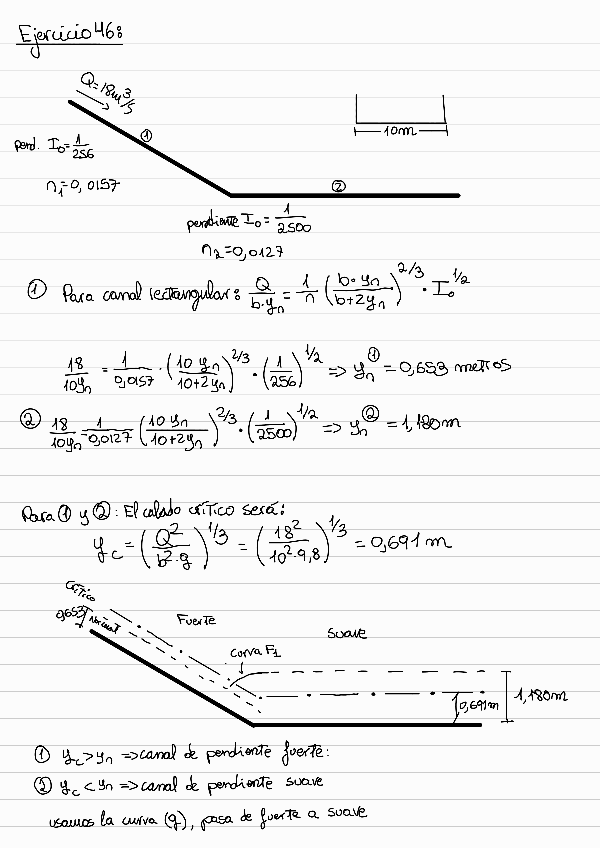 Ejercicio 46:
Q=18m³/s
pend. I₀=1/256
n₁=0,0157
①
②
10m
pendiente I₀=1/2500
n₂=0,0127
① Para canal rectangular: Q/(b·yₙ) = 1/n ((b·yₙ)/(b+2yₙ))^2/3 · I₀^1/2
18/(10yₙ) = 1/0,0157 · ((10yₙ)/(10+2yₙ))^2/3 · (1/256)^1/2 => yₙ^① = 0,653 metros
② 18/(10yₙ) = 1/0,0127 ((10yₙ)/(10+2yₙ))^2/3 · (1/2500)^1/2 => yₙ^② = 1,180m
Para ① y ②: El calado crítico será:
y_c = (Q²/(b²·g))^1/3 = (18²/(10²·9,8))^1/3 = 0,691 m
Crítico
0,653
Normal
Fuerte
Suave
curva F₁
0,691m
1,180m
① y_c > yₙ => canal de pendiente fuerte:
② y_c < yₙ => canal de pendiente suave
usamos la curva (g), pasa de fuerte a suave